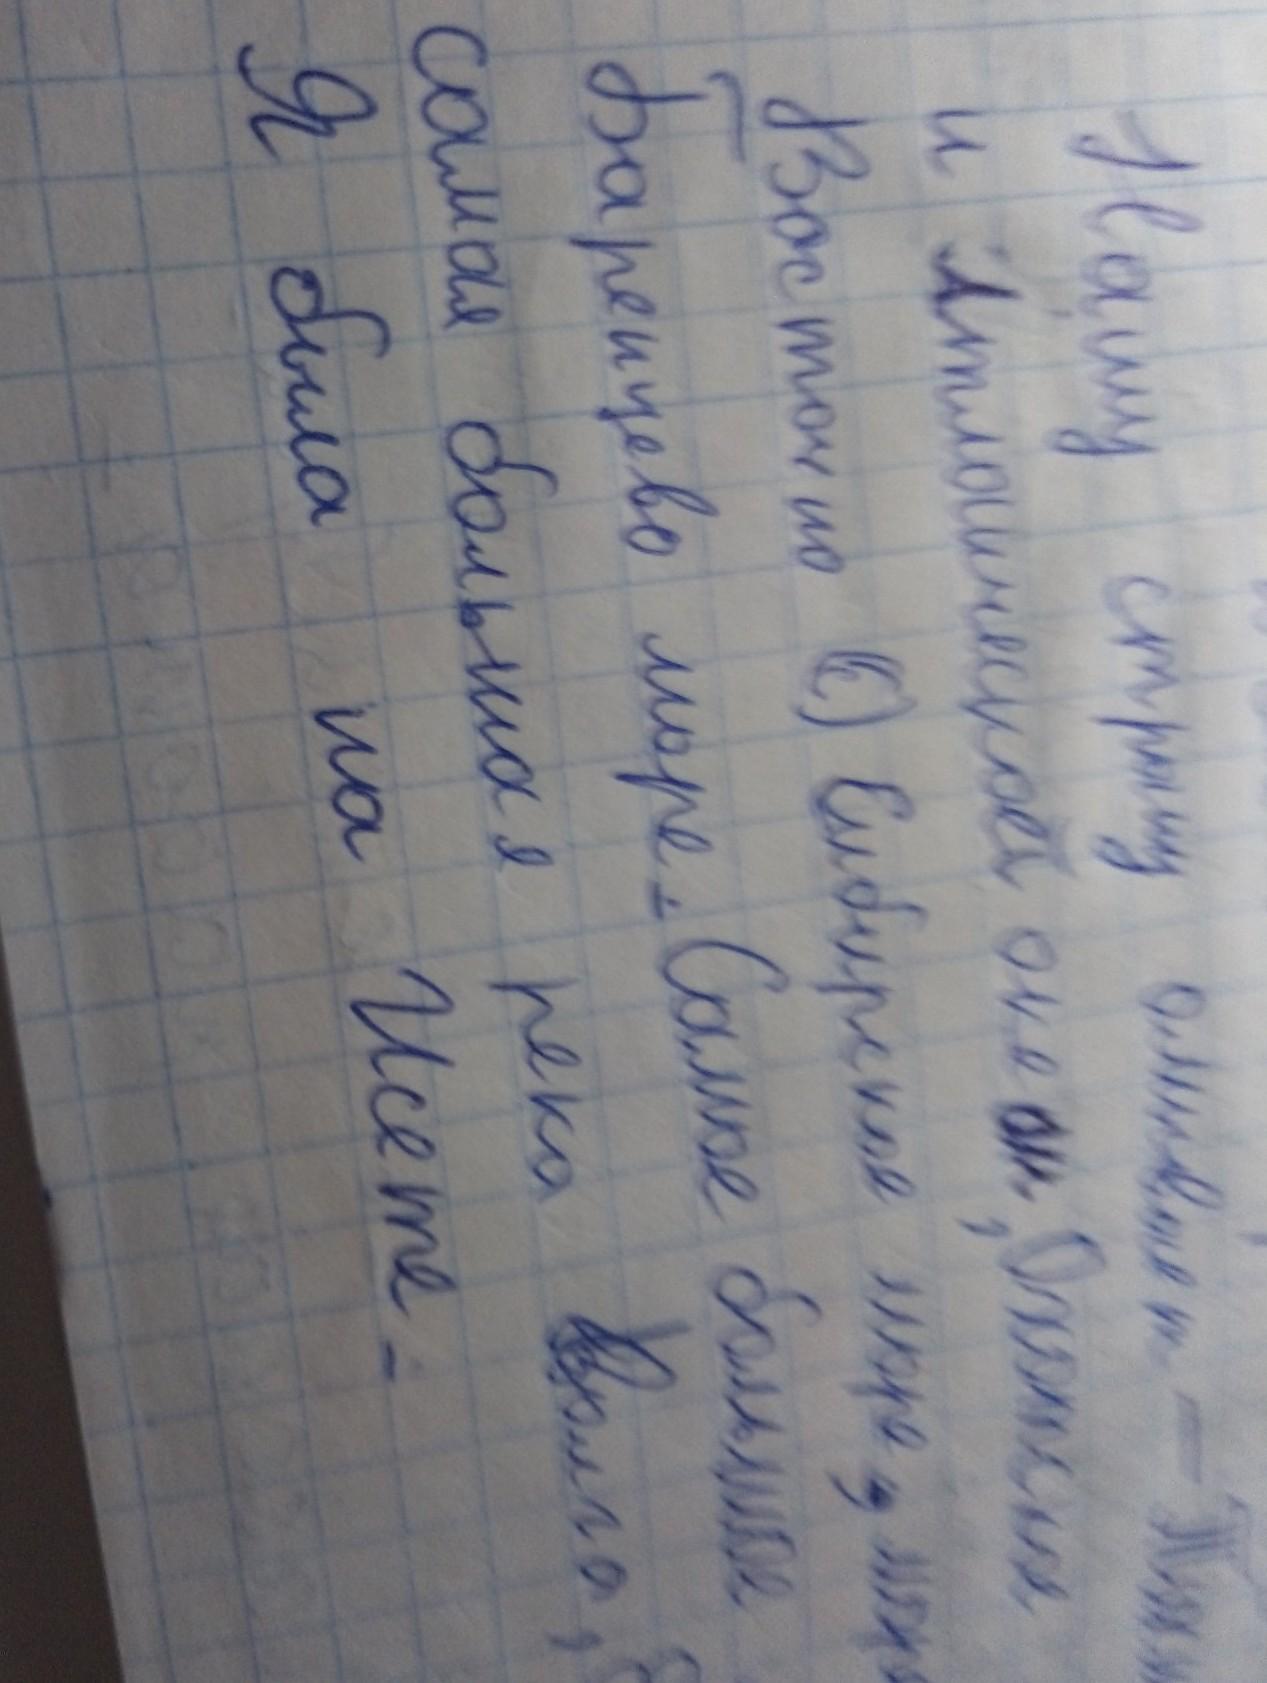 Нашу страну омывают – Тихий
и Атлантической океан, Охотское
Восточно Сибирское море, мор
Баренцево море. Самое большое
самая большая река Волга,
Я была на Исете.